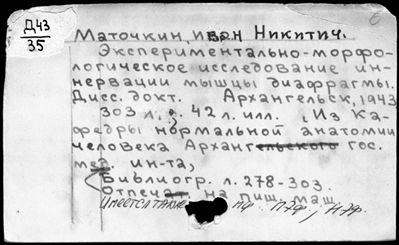 Д43
35
6
Маточкин Иван Никитич.
Экспериментально-морфо-
логическое исследование ин-
нервации мышцы диафрагмы.
Дисс. докт. Архангельск, 1943
303 л.; 42 л. илл. Из ка-
федры нормальной анатомии
человека Архангельского гос.
мед. ин-та,
Библиогр. л. 278-303.
Отпечат. на пиш. маш.
Имеется также